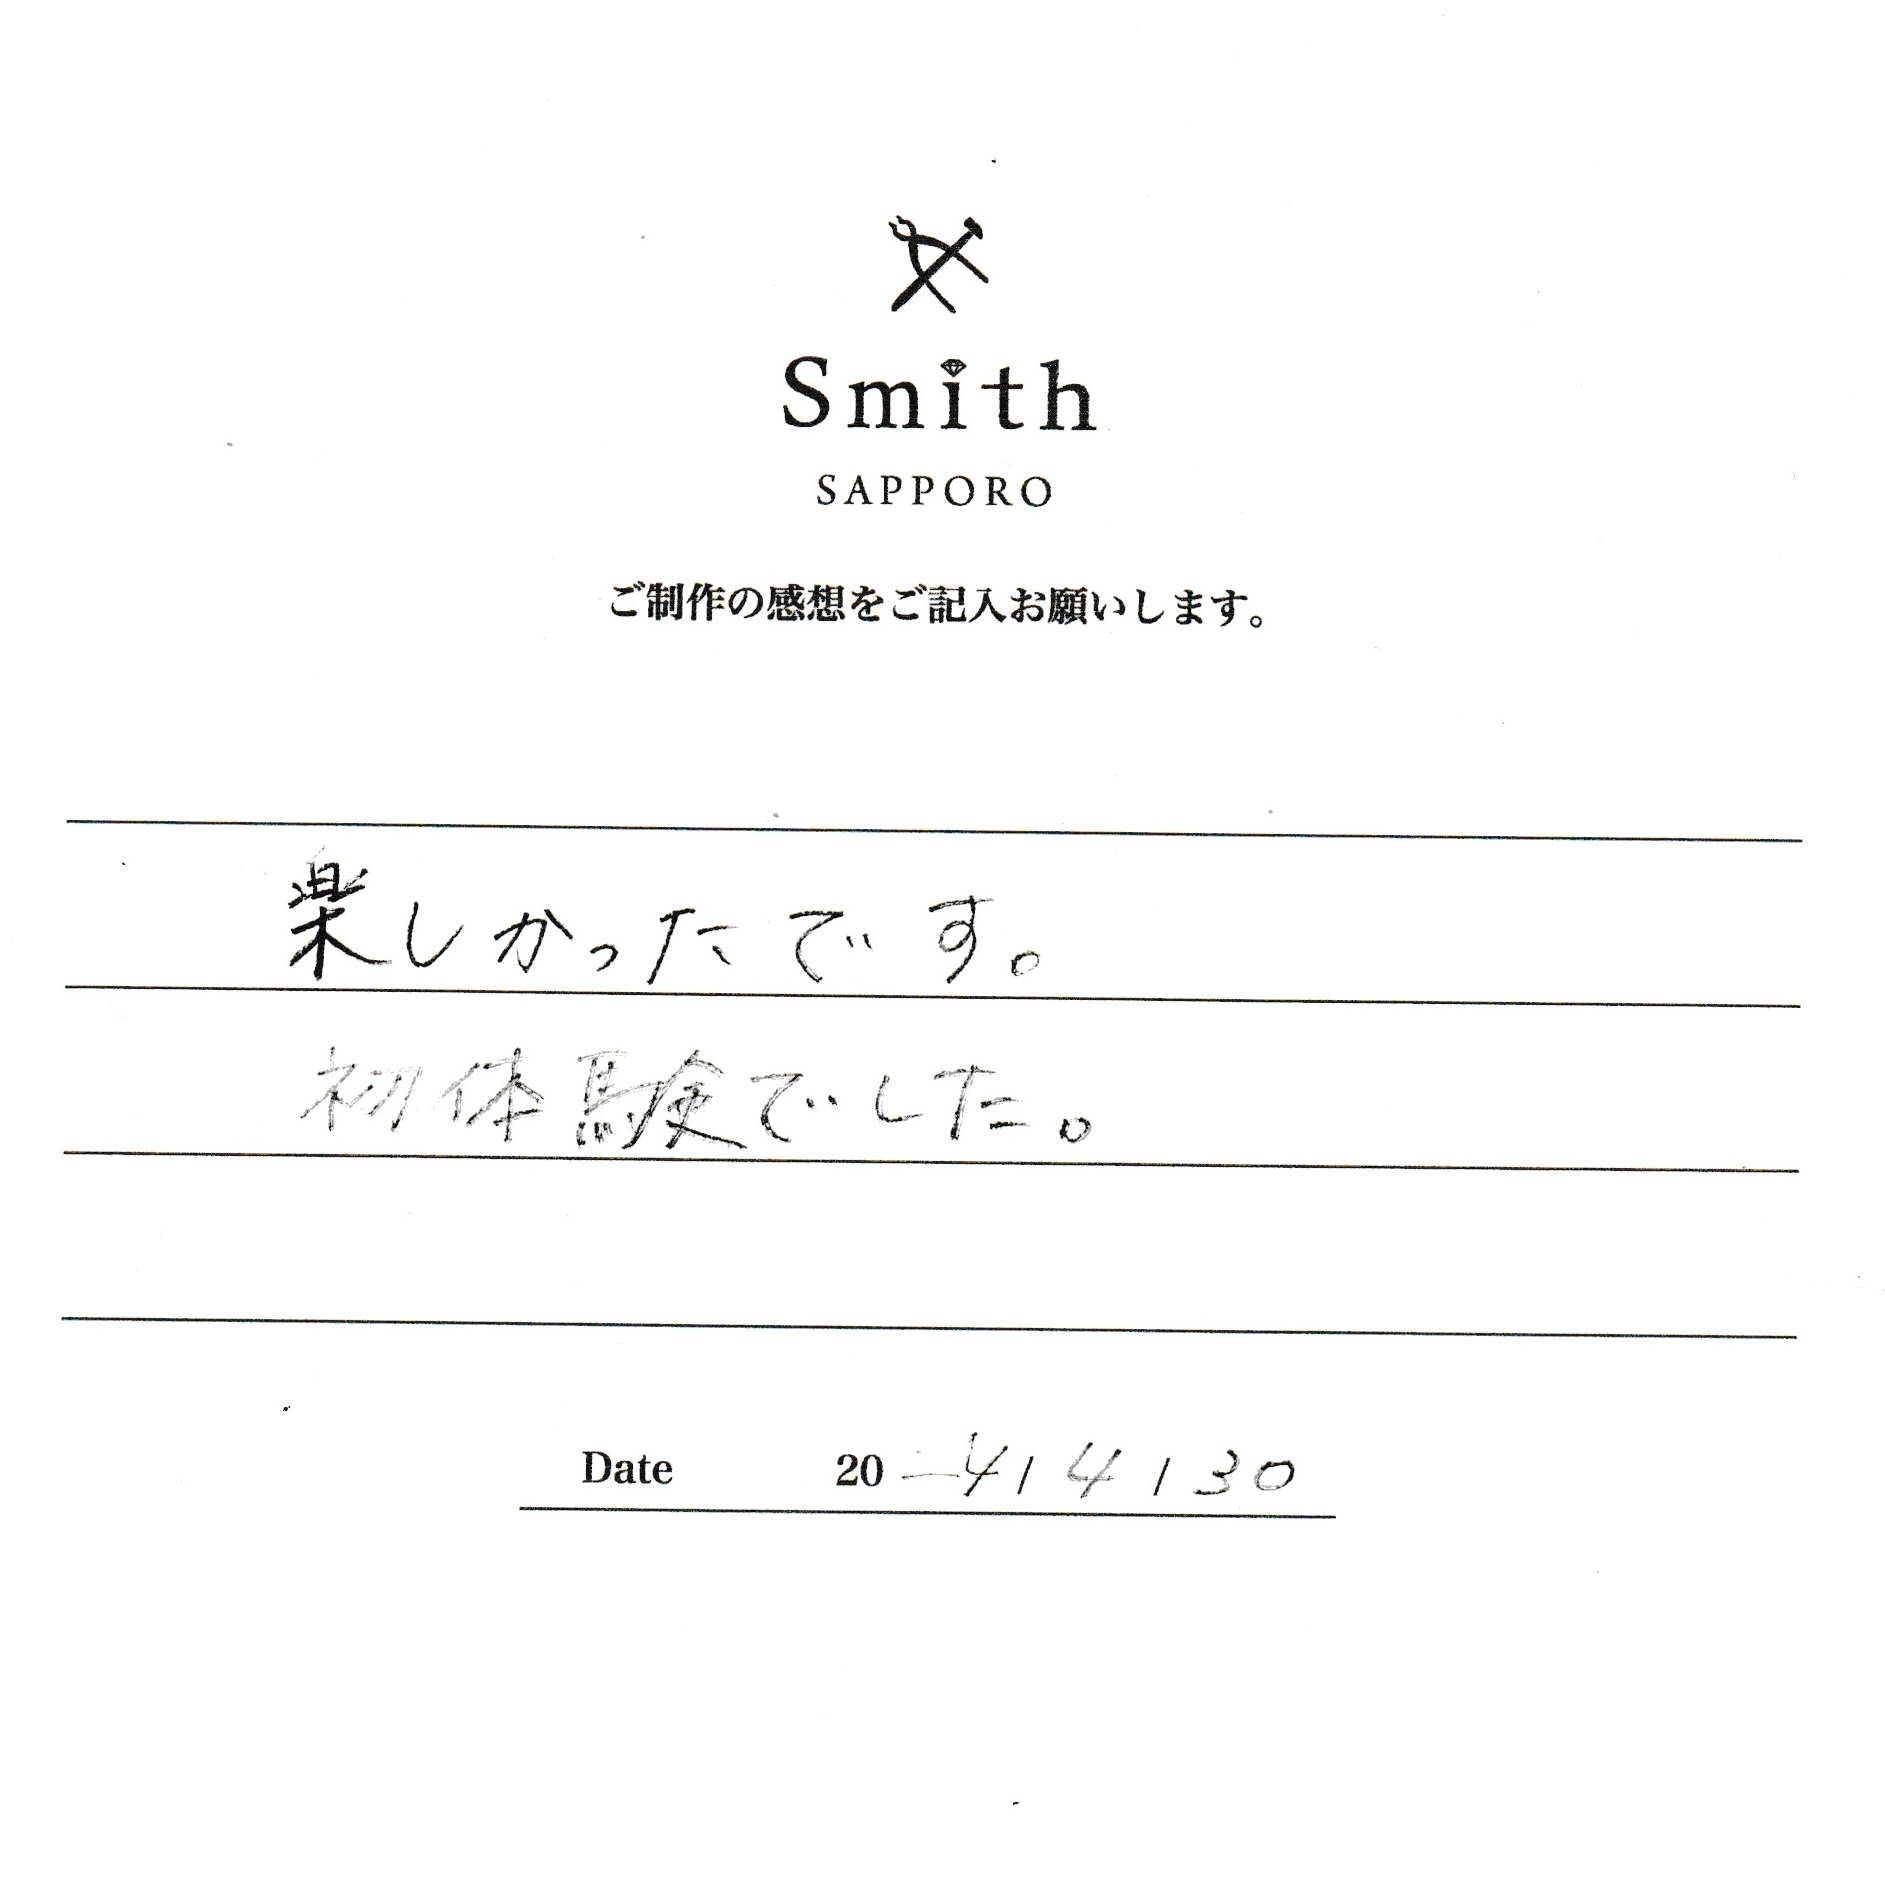 Smith
SAPPORO
ご制作の感想をご記入お願いします。
楽しかったです。
初体験でした。
Date 20 24 / 4 / 30